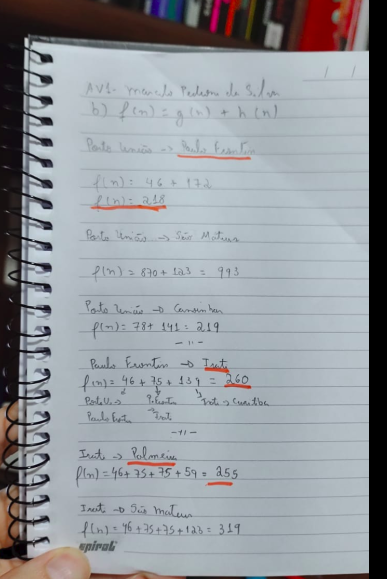 AV1 - Marcelo Pedroso da Silva
b) f(n) = g(n) + h(n)
Porto União → Paulo Frontin
f(n) = 46 + 172
f(n) = 218
Porto União → São Mateus
f(n) = 870 + 123 = 993
Porto União → Canoinhas
f(n) = 78 + 141 = 219
— 11 —
Paulo Frontin → Irati
f(n) = 46 + 75 + 139 = 260
Porto U. → P. Frontin Irati → Curitiba
Paulo Front. → Irati
— 11 —
Irati → Palmeira
f(n) = 46 + 75 + 75 + 59 = 255
Irati → São Mateus
f(n) = 46 + 75 + 75 + 123 = 319
spiral